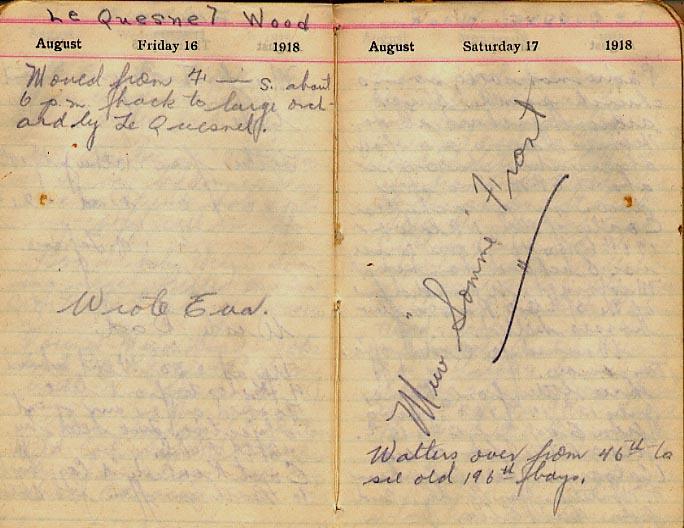 Le Quesnel Wood
August Friday 16 1918
Moved from 4' — s. about
6 p.m. back to large orch-
ard by Le Quesnel.
Wrote Eva.
August Saturday 17 1918
New "Somme" Front
Walters over from 46th to
see old 196th boys.